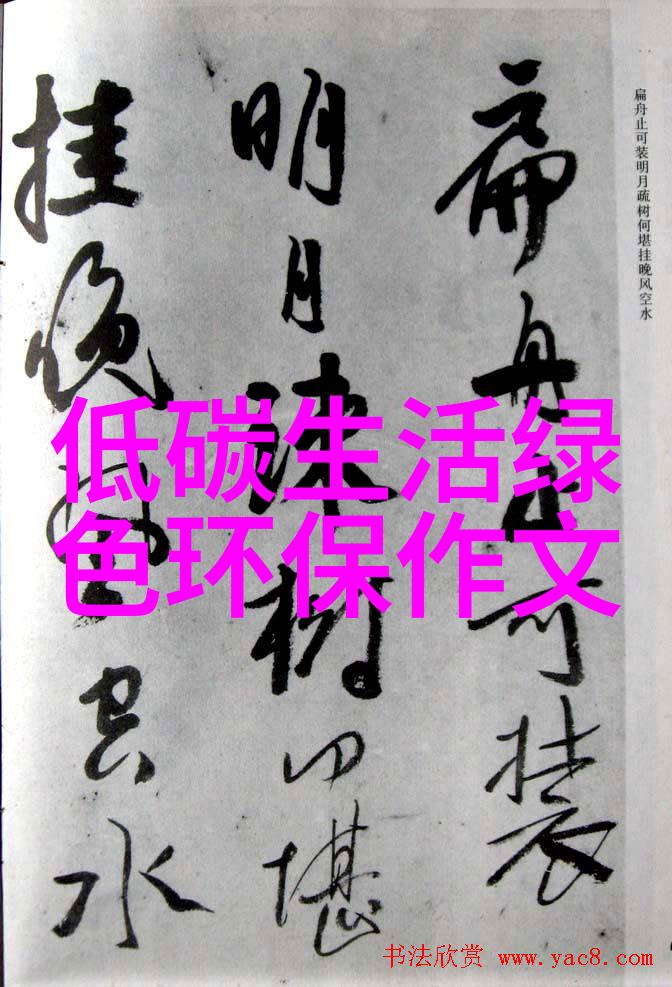 扁舟止可装
明月疏树何堪
挂晚风空水
扁舟止可装明月疏树何堪挂晚风空水
低碳生活绿
色环保作文
书法欣赏 www.yac8.com